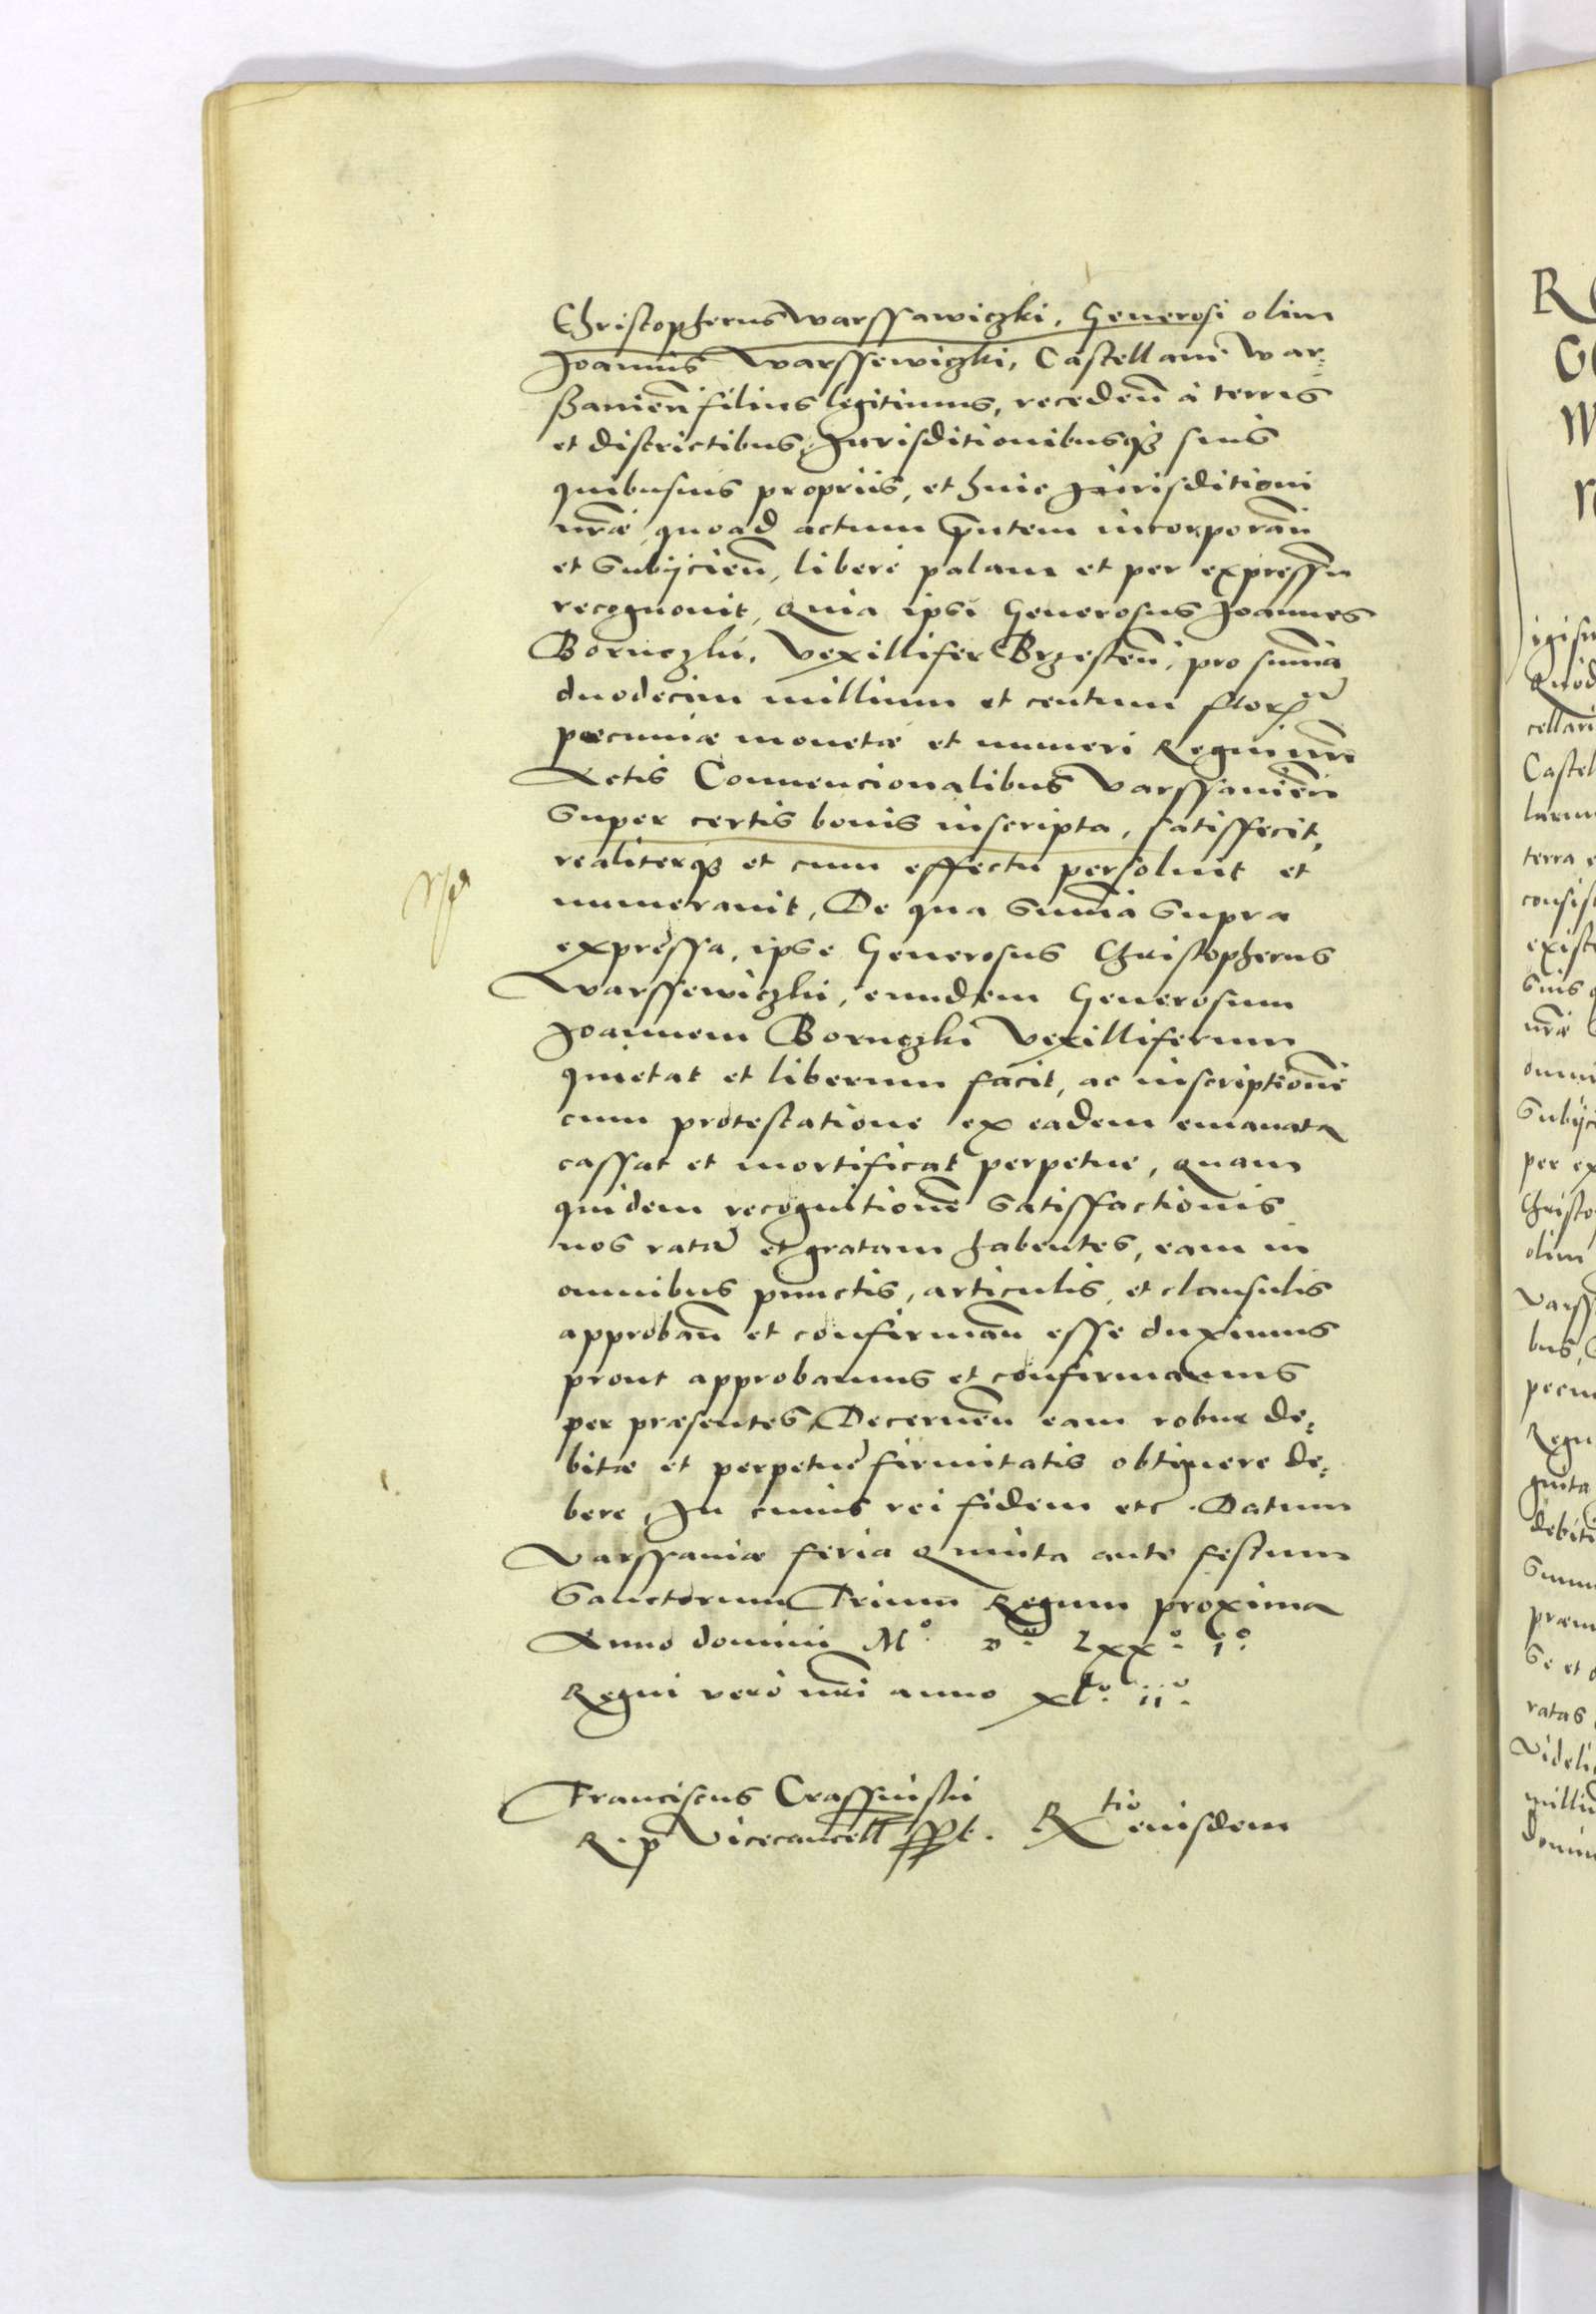 Christopherus Warssawiczki, Generosi olim
Joannis Warssewiczki, Castellani War:
ßavien̄ filius legitimus, receden̄ à terris
et districtibus, Jurisditionibusqȝ suis
quibusuis propriis, et huic jurisditioni
nr̄æ, quoad actum pn̄tem incorporan̄
et subijcien̄, liberè palam et per expressum
recognouit, Quia ipsi Generosus Joannes
Boruczki, Vexillifer Brzesten̄, pro sum̄a
duodecim millium et centum flor
pecuniæ monetæ et numeri Regni nr̄i
Actis Conuencionalibus Varssauien̄
super certis bonis inscripta, satisfecit,
realiterqȝ et cum effectu persoluit et
numerauit, De qua sum̄a supra
expressa, ipse Generosus Christopherus
Warssewiczki, eundem Generosum
Joannem Boruczki Vexilliferum
quietat et liberum facit, ac inscriptionē
cum protestatione ex eadem emanata
cassat et mortificat perpetue, Quam
quidem recognitionē satisfactionis
nos ratā et gratam habentes, eam in
omnibus punctis, articulis, et clausulis
approban̄ et confirman̄ esse duximus
prout approbamus et confirmamus
per præsentes, Decernen̄ eam robur de:
bitæ et perpetuè firmitatis obtinere de:
bere, In cuius rei fidem etc. Datum
Varssauiæ feria Quinta ante festum
Sanctorum Trium Regum proxima
Anno domini M° D° Lxx° i°
Regni verò nr̄i anno xl° ii°
Franciscus Crassinski
R. p Vicecancell sspt. Rtio eiusdem